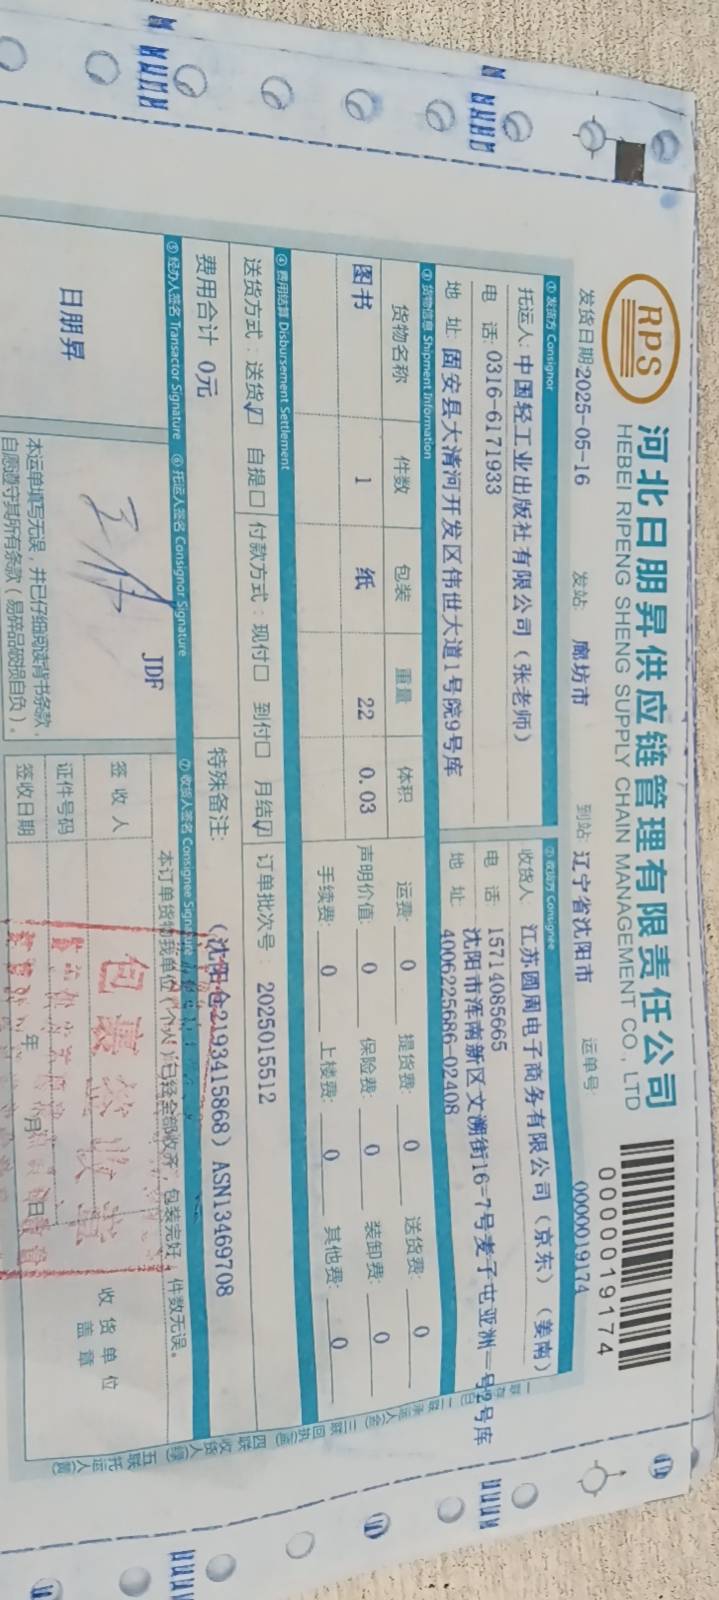 RPS
河北日朋昇供应链管理有限责任公司
HEBEI RIPENG SHENG SUPPLY CHAIN MANAGEMENT CO., LTD
0000019174
发货日期:2025-05-16 发站: 廊坊市 到站: 辽宁省沈阳市 运单号: 0000019174
① 发货方 Consignor ② 收货方 Consignee
托运人: 中国轻工业出版社有限公司（张老师） 收货人: 江苏圆周电子商务有限公司（京东）（姜南）
电 话: 0316-6171933 电 话: 15714085665
地 址: 固安县大清河开发区伟世大道1号院9号库 地 址: 沈阳市浑南新区文溯街16-7号麦子屯亚洲一号2号库
4006225686-02408
③ 货物信息 Shipment Information
货物名称 件数 包装 重量 体积 运费: 0 提货费: 0 送货费: 0
图书 1 纸 22 0.03 声明价值: 0 保险费: 0 装卸费: 0
手续费: 0 上楼费: 0 其他费: 0
④ 费用结算 Disbursement Settlement
送货方式: 送货☑ 自提□ 付款方式: 现付□ 到付□ 月结☑ 订单批次号: 2025015512
费用合计 0元 特殊备注: (沈阳仓2193415868) ASN13469708
⑤ 经办人签名 Transactor Signature ⑥ 托运人签名 Consignor Signature ⑦ 收货人签名 Consignee Signature
日朋昇
JDF
本订单货物我单位（个人）已经全部收齐，包装完好，件数无误。
签 收 人
证件号码
签收日期 年 月 日
收 货 单 位
盖 章
包裹签收章
本运单填写无误，并已仔细阅读背书条款，
自愿遵守其所有条款（易碎品破损自负）。